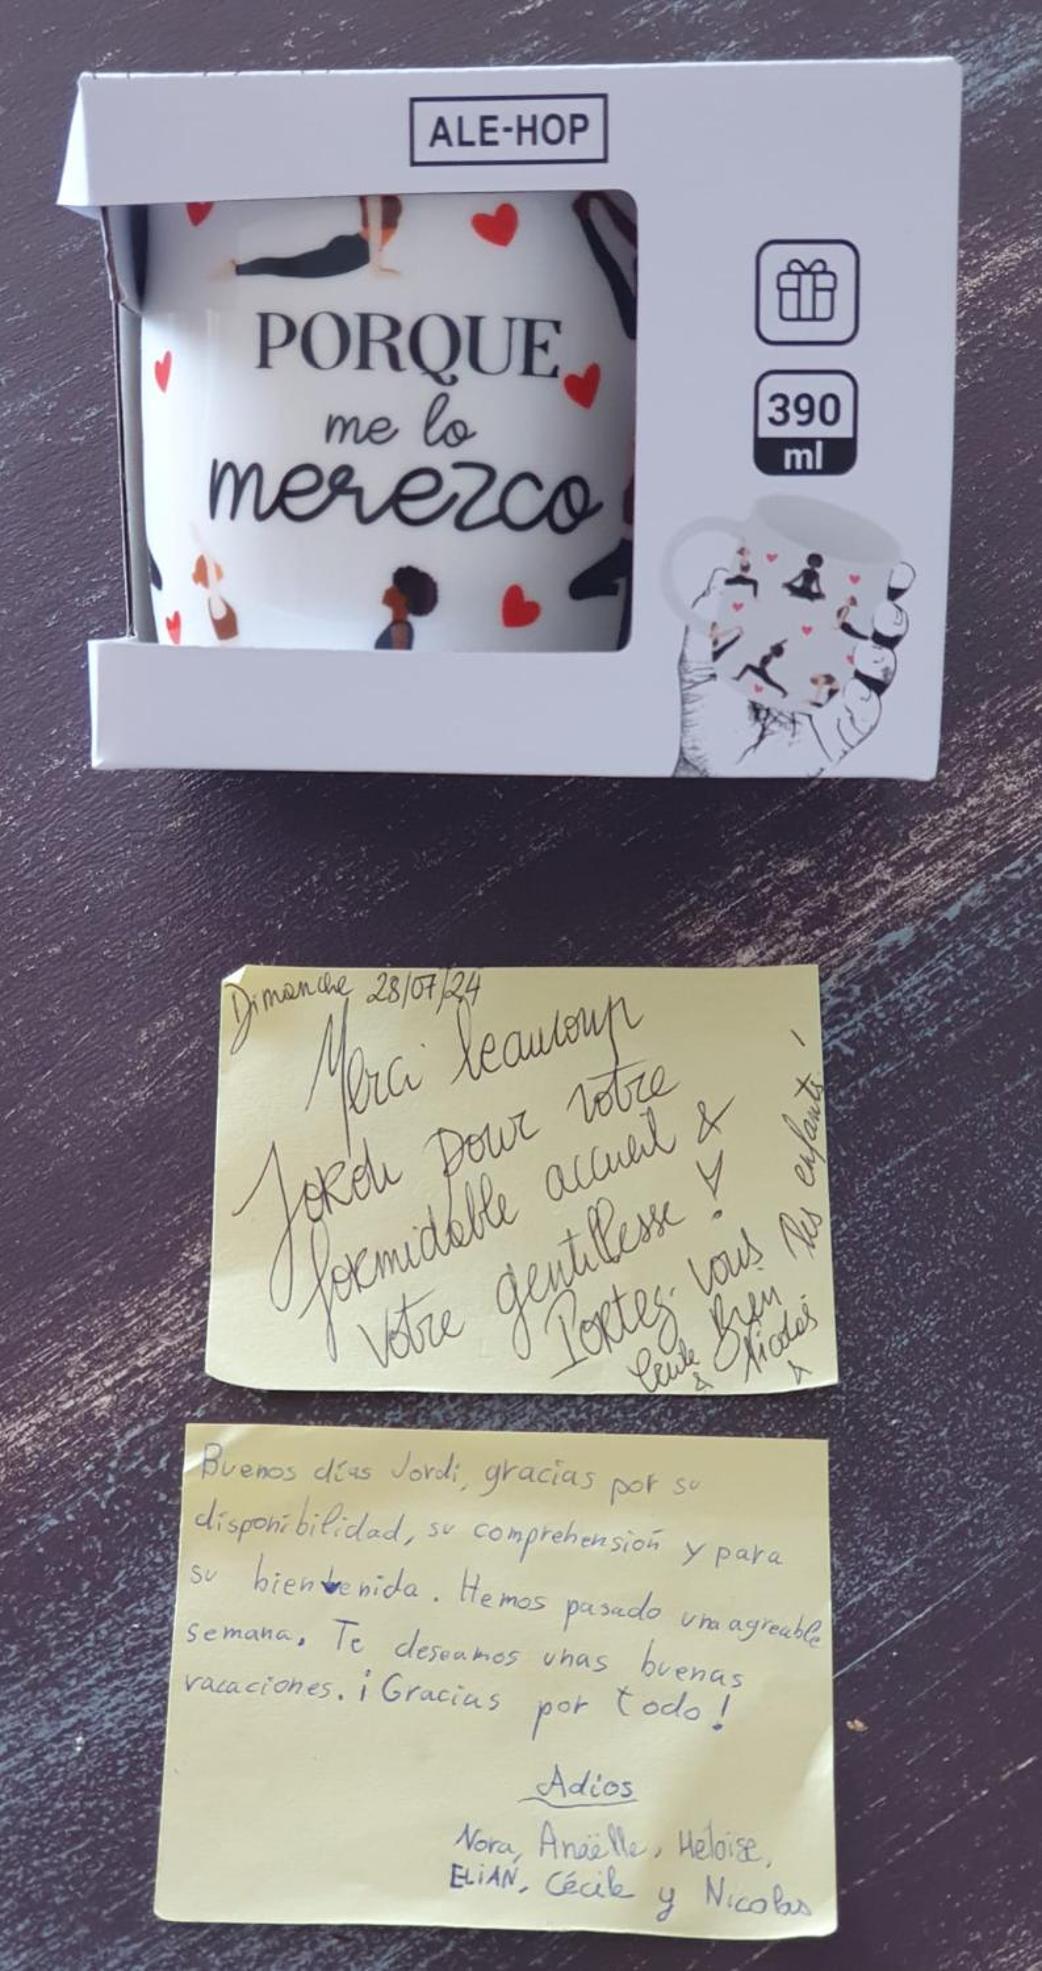 ALE-HOP
PORQUE
me lo
merezco
390
ml
Dimanche 28/07/24
Merci beaucoup
Jordi pour votre
formidable accueil &
votre gentillesse !
Portez-vous Bien
Cécile & Nicolas
& les enfants !
Buenos días Jordi, gracias por su
disponibilidad, su comprehensión y para
su bienvenida. Hemos pasado una agreable
semana. Te deseamos unas buenas
vacaciones. ¡Gracias por todo!
Adios
Nora, Anaëlle, Héloïse,
ELiAN, Cécile y Nicolas